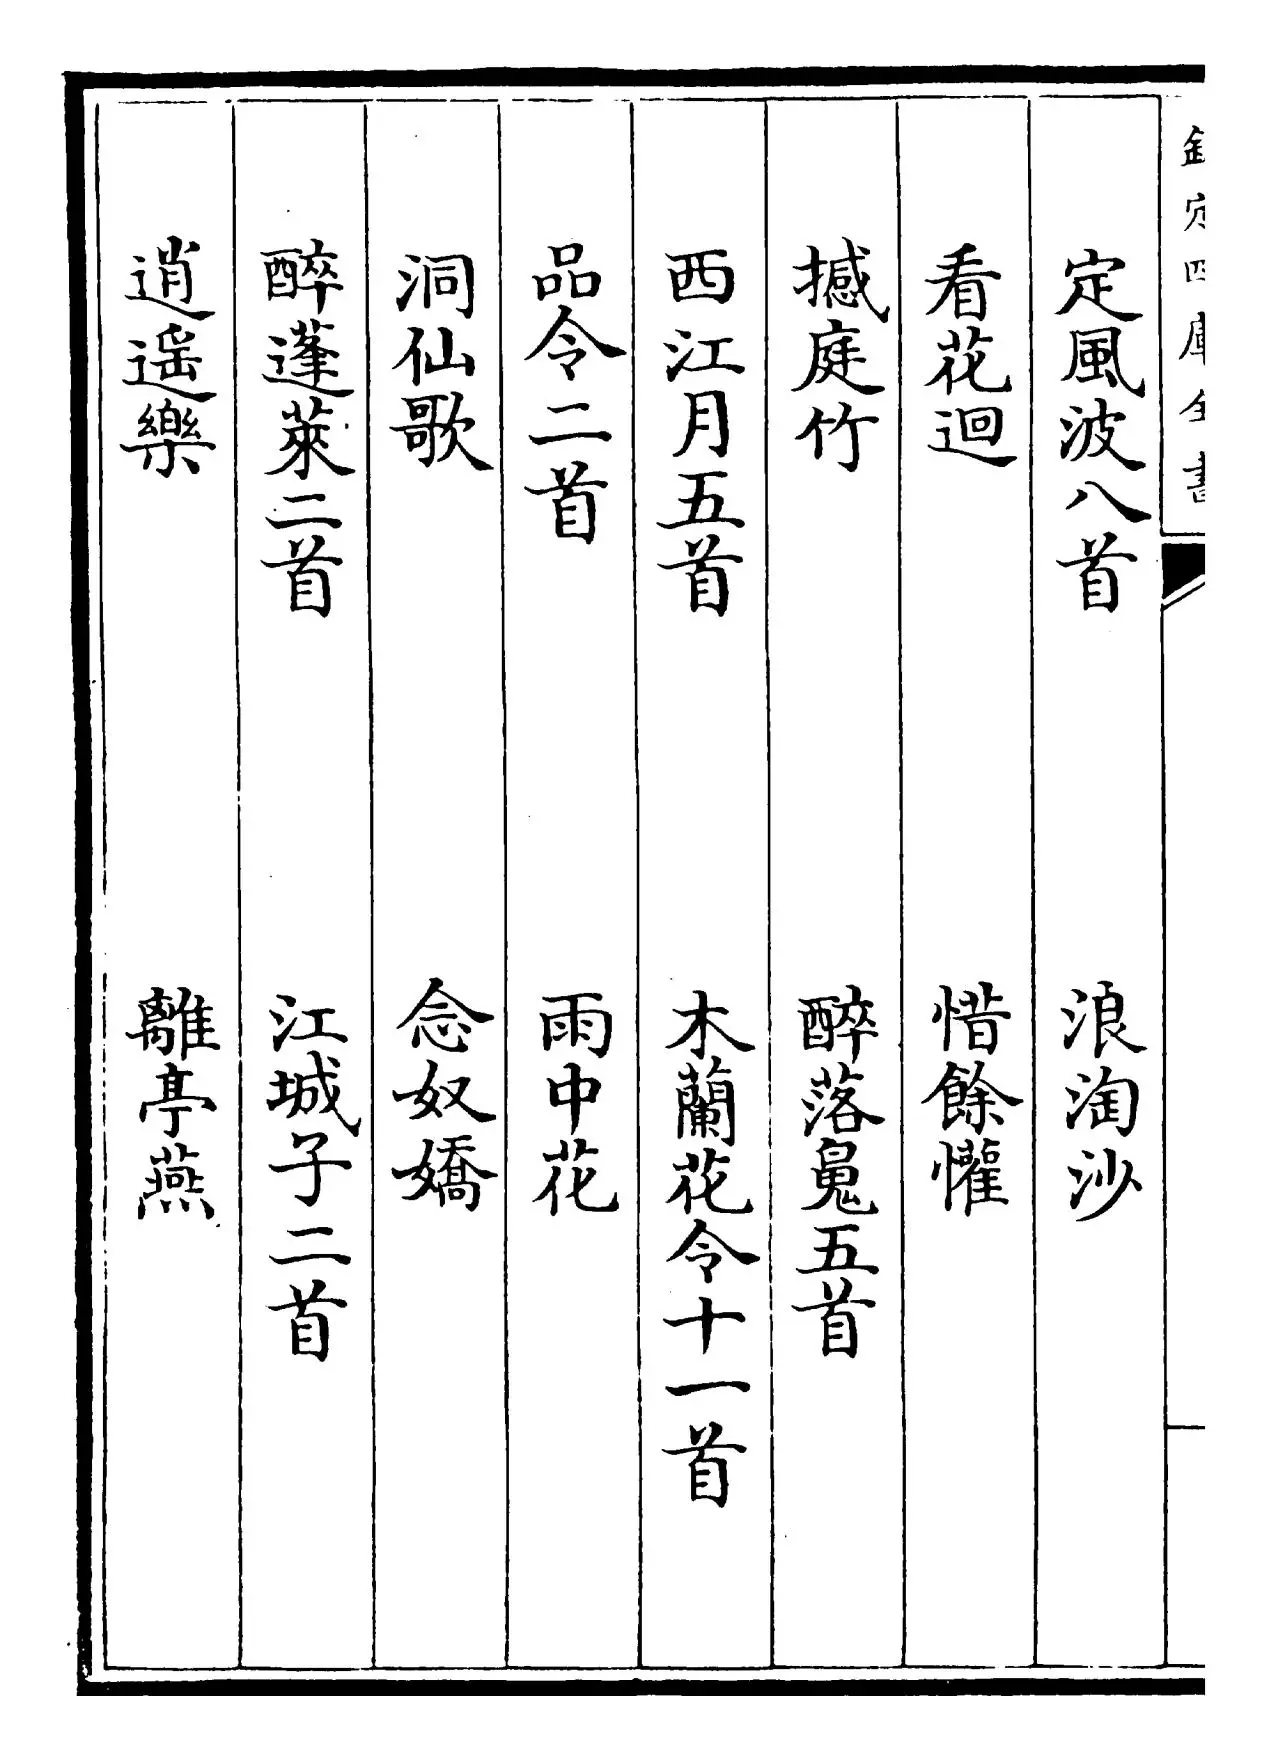 欽定四庫全書
定風波八首 浪淘沙
看花迴 惜餘懽
撼庭竹 醉落䰟五首
西江月五首 木蘭花令十一首
品令二首 雨中花
洞仙歌 念奴嬌
醉蓬萊二首 江城子二首
逍遥樂 離亭燕